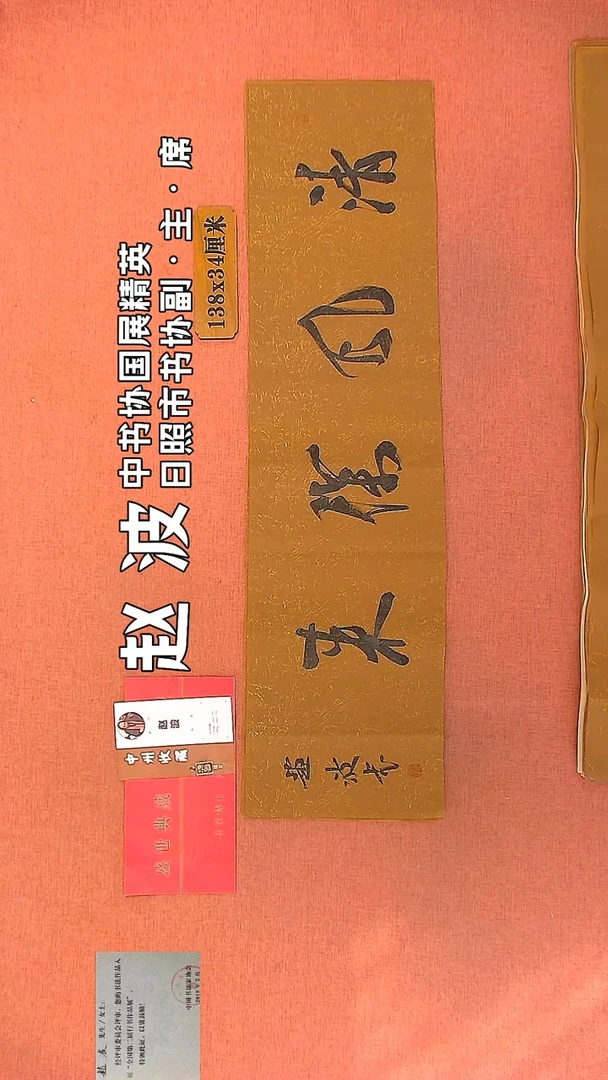 赵波
中书协国展精英
日照市书协副·主·席
138x34厘米
清风徐来
赵波书
赵波
中州收藏
盛世典藏
赵波 先生/女士:
经评审委员会评审,您的书法作品入
展“全国第二届行书作品展”,
特颁此证,以资鼓励!
中国书法家协会